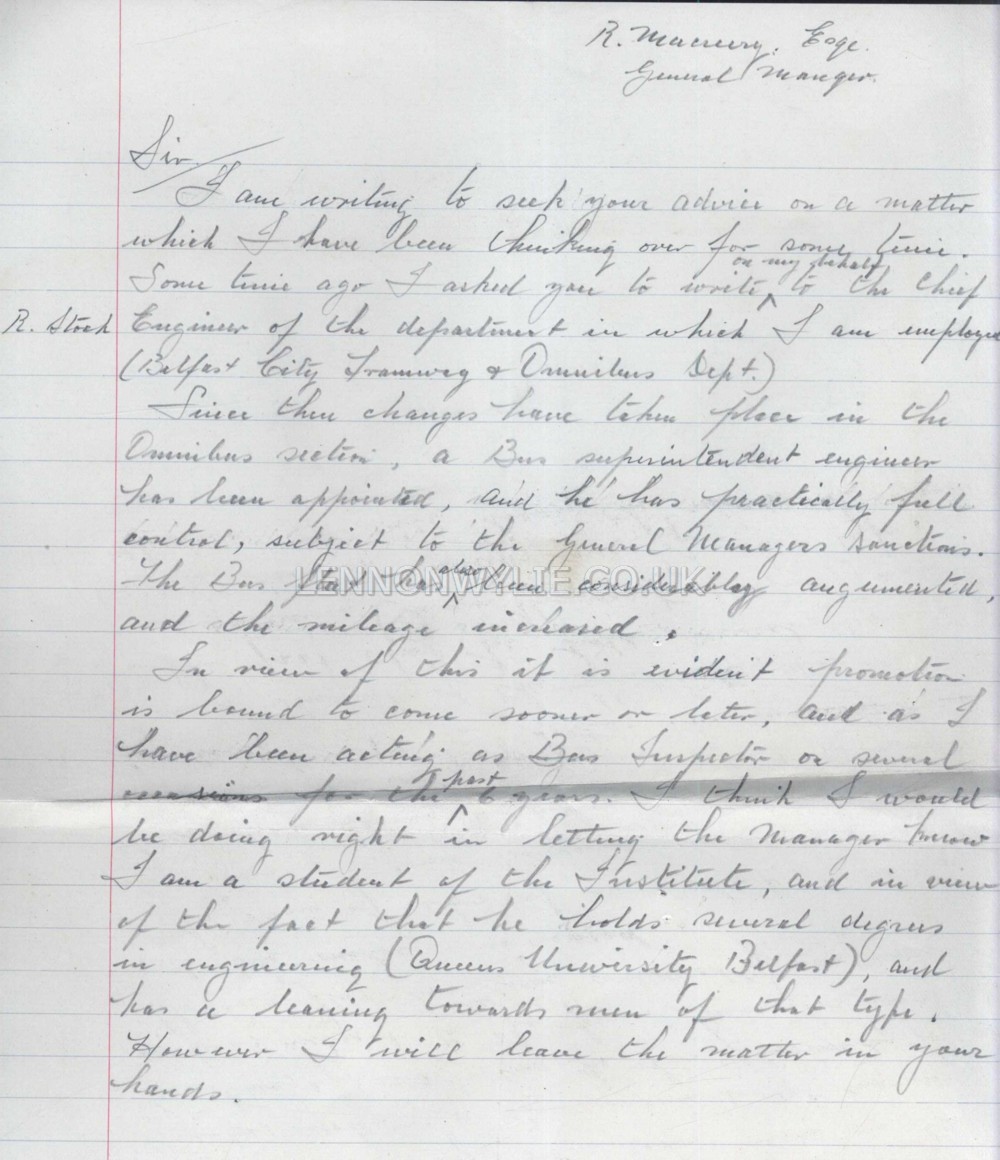 R. Macreery. Esqe.
General Manger.
Sir
I am writing to seek your advice on a matter
which I have been thinking over for some time.
on my behalf
Some time ago I asked you to write ^ to the Chief
R. Stock Engineer of the department in which I am employed
(Belfast City Tramway & Omnibus Dept.)
Since then changes have taken place in the
Omnibus section, a Bus superintendent engineer
has been appointed, and he has practically full
control, subject to the General Managers sanctions.
also
The Bus has ^ been considerably augumented,
LENNONWYLIE.CO.UK
and the mileage increased.
In view of this it is evident promotion
is bound to come sooner or later, and as I
have been acting as Bus Inspector on several
past
occasions for the ^ 6 years. I think I would
be doing right in letting the Manager know
I am a student of the Institute, and in view
of the fact that he holds several degrees
in engineering (Queens University Belfast), and
has a leaning towards men of that type.
However I will leave the matter in your
hands.